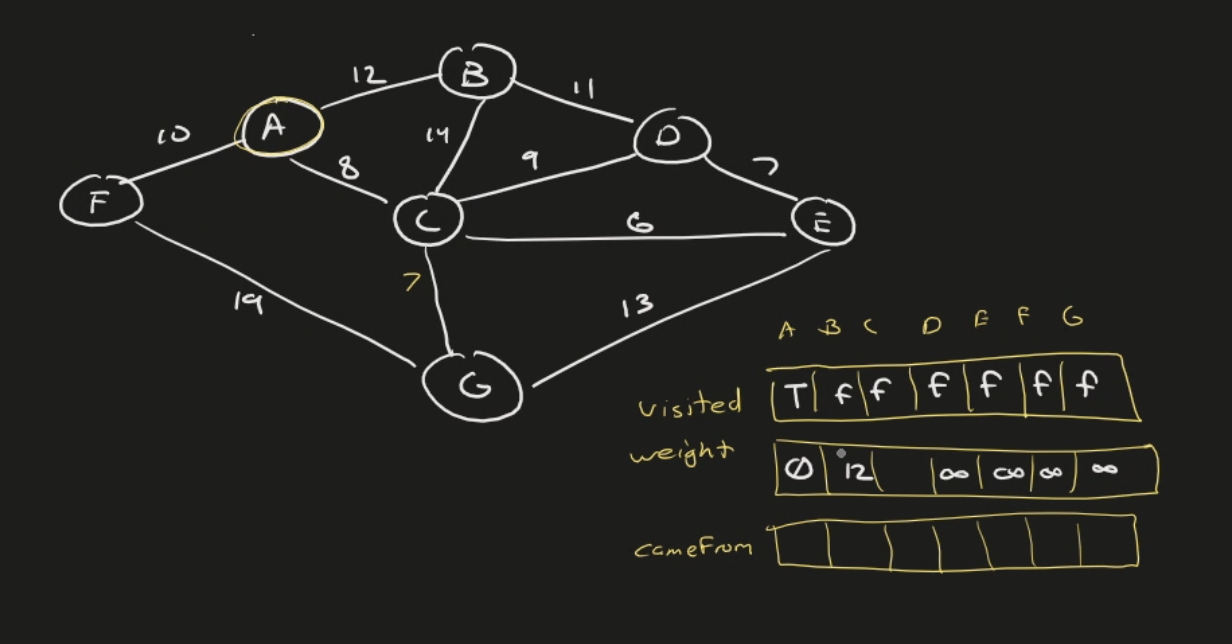 12
B
11
10
A
14
D
9
7
8
F
C
6
E
7
19
13
G
A B C D E F G
visited T f f f f f f
weight 0 12 ∞ ∞ ∞ ∞
cameFrom